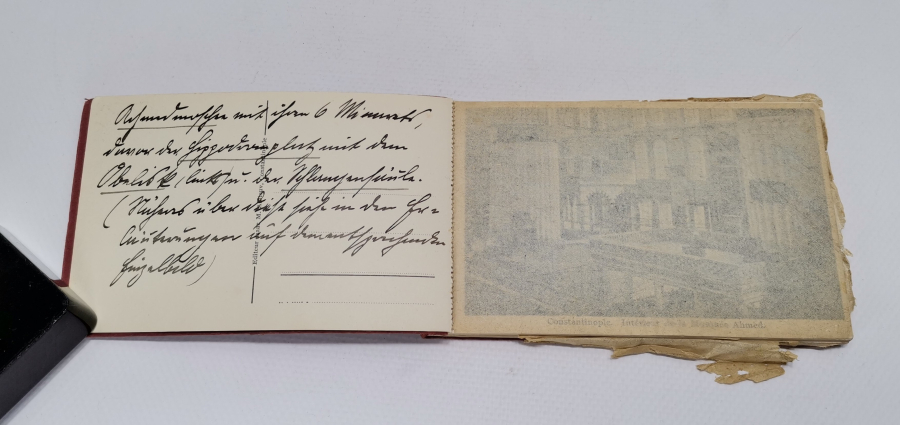 Achmedmoschee mit ihren 6 Minarets,
davor der Hippodromplatz mit dem
Obelisk (links) u. der Schlangensäule.
(Näheres über diese siehe in den Er=
läuterungen auf dem entsprechenden
Einzelbild)
Editeur
Constantinople. Intérieur de la Mosquée Ahmed.